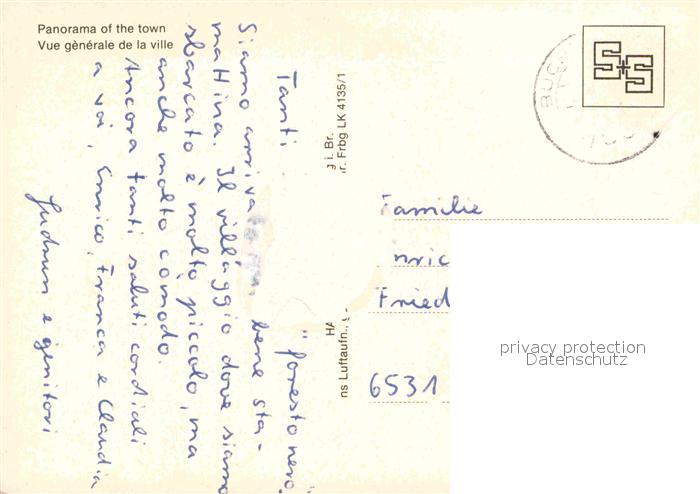 Panorama of the town
Vue génèrale de la ville
Tanti
"foresto nero."
Siamo arriva bene sta-
mattina. Il villaggio dove siamo
sbarcato è molto piccolo, ma
anche molto comodo.
Ancora tanti saluti cordiali
a voi, Enrico, Franca e Claudia
Gudrun e genitori
g i. Br.
r. Frbg LK 4135/1
HA
ns Luftaufn.,
S+S
BUC
Familie
nric
Fried
6531
privacy protection
Datenschutz